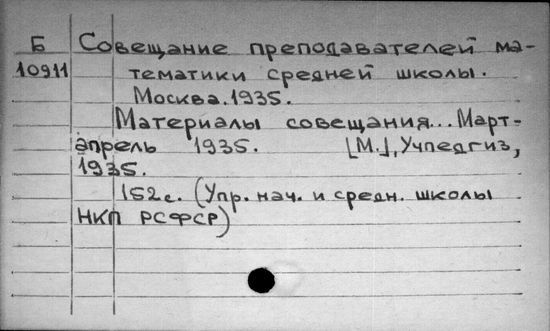 Б Совещание преподавателей ма-
10911 тематики средней школы.
Москва. 1935.
Материалы совещания... Март-
апрель 1935. [М.], Учпедгиз,
1935.
152 с. (Упр. нач. и средн. школы
НКП РСФСР)